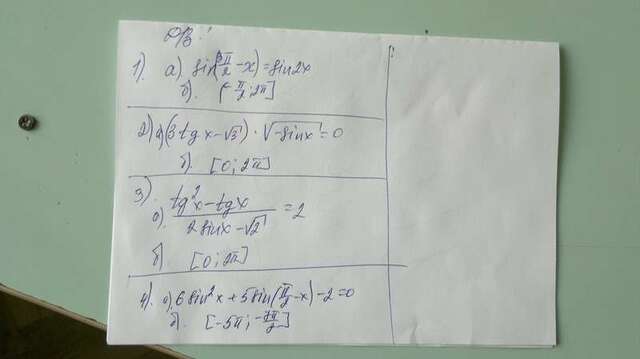 ДЗ:
1). а). sin(3π/2 - x) = sin2x
б). [-π/2; 2π]
2) а) (3tgx - √3) · √-sinx = 0
б). [0; 2π]
3). а). (tg²x - tgx)/(2sinx - √2) = 2
б) [0; 2π]
4). а) 6sin²x + 5sin(π/2 - x) - 2 = 0
б). [-5π; -7π/2]